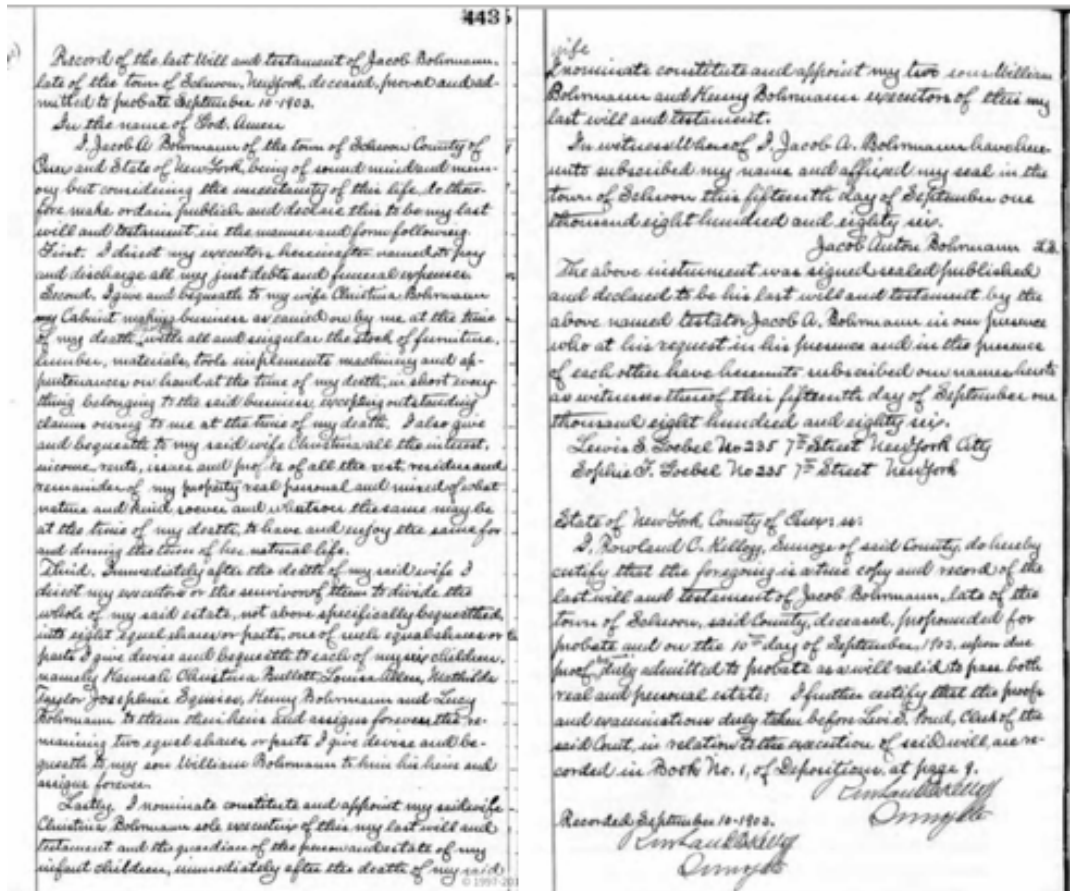 443
Record of the last Will and testament of Jacob Bohrmann
late of the town of Schroon, New York, deceased, proved and ad-
mitted to probate September 10-1903.
In the name of God. Amen
I, Jacob A Bohrmann of the town of Schroon County of
Essex and State of New York, being of sound mind and mem-
ory but considering the uncertainty of this life, do there-
fore make ordain publish and declare this to be my last
will and testament, in the manner and form following.
First. I direct my executors hereinafter named to pay
and discharge all my just debts and funeral expenses.
Second. I give and bequeath to my wife Christina Bohrmann
my Cabinet making business as carried on by me at the time
of my death, with all and singular the stock of furniture,
lumber, materials, tools implements machinery and ap-
purtenances on hand at the time of my death, in short every
thing belonging to the said business, excepting outstanding
claims owing to me at the time of my death. I also give
and bequeath to my said wife Christina all the interest,
income, rents, issues and profits of all the rest, residue and
remainder of my property real personal and mixed of what
nature and kind soever and whatsoever the same may be
at the time of my death, to have and enjoy the same for
and during the term of her natural life.
Third. Immediately after the death of my said wife I
direct my executors or the survivor of them to divide the
whole of my said estate, not above specifically bequeathed,
into eight equal shares or parts, one of such equal shares or
parts I give devise and bequeath to each of my six children,
namely Hannah Christina Bullett, Louisa Allen, Mathilde
Taylor Josephine Squires, Henry Bohrmann and Lucy
Bohrmann to them their heirs and assigns forever, the re-
maining two equal shares or parts I give devise and be-
queath to my son William Bohrmann to him his heirs and
assigns forever.
Lastly. I nominate constitute and appoint my said wife
Christina Bohrmann sole executrix of this my last will and
testament and the guardian of the person and estate of my
infant children, immediately after the death of my said
© 1997-201
wife
I nominate constitute and appoint my two sons William
Bohrmann and Henry Bohrmann executors of this my
last will and testament.
In witness Whereof I, Jacob A. Bohrmann have here-
unto subscribed my name and affixed my seal in the
town of Schroon this fifteenth day of September one
thousand eight hundred and eighty six.
Jacob Anton Bohrmann L.S.
The above instrument was signed sealed published
and declared to be his last will and testament by the
above named testator Jacob A. Bohrmann in our presence
who at his request in his presence and in the presence
of each other have hereunto subscribed our names hereto
as witnesses thereof this fifteenth day of September one
thousand eight hundred and eighty six.
Lewis S. Goebel No 235 7th Street New York City
Sophie F. Goebel No 235 7th Street New York
State of New York County of Essex ss:
I, Rowland C. Kellogg, Surrogate of said County, do hereby
certify that the foregoing is a true copy and record of the
last will and testament of Jacob Bohrmann, late of the
town of Schroon, said County, deceased, propounded for
probate and on the 10th day of September, 1903, upon due
proof, duly admitted to probate as a will valid to pass both
real and personal estate; I further certify that the proofs
and examinations duly taken before Levi S. Pond, Clerk of the
said Court, in relation to the execution of said will, are re-
corded in Book No. 1, of Depositions, at page 9.
Rowland C Kellogg
Surrogate
Recorded September 10-1903.
Rowland C Kellogg
Surrogate